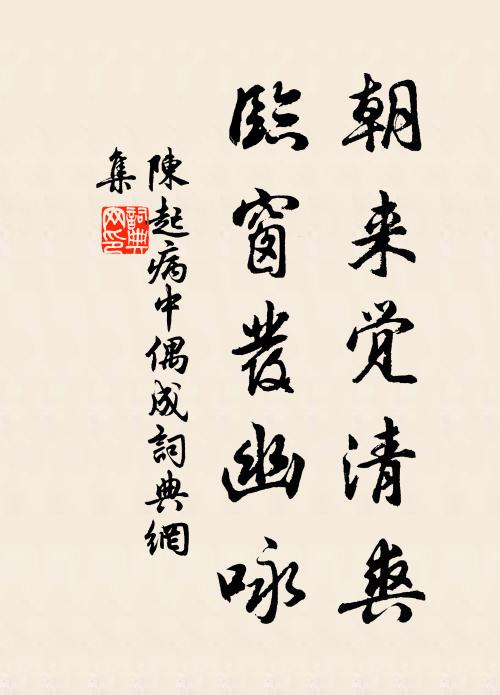 朝来觉清爽
臨窗發幽咏
陳起病中偶成詞典網
集
詞典網印